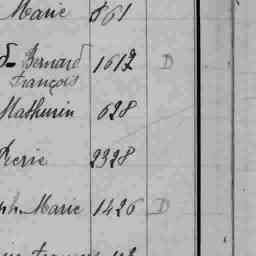 Marie 861
Bernard 1612 D
François
Mathurin 628
Pierre 2328
ph. Marie 1426 D